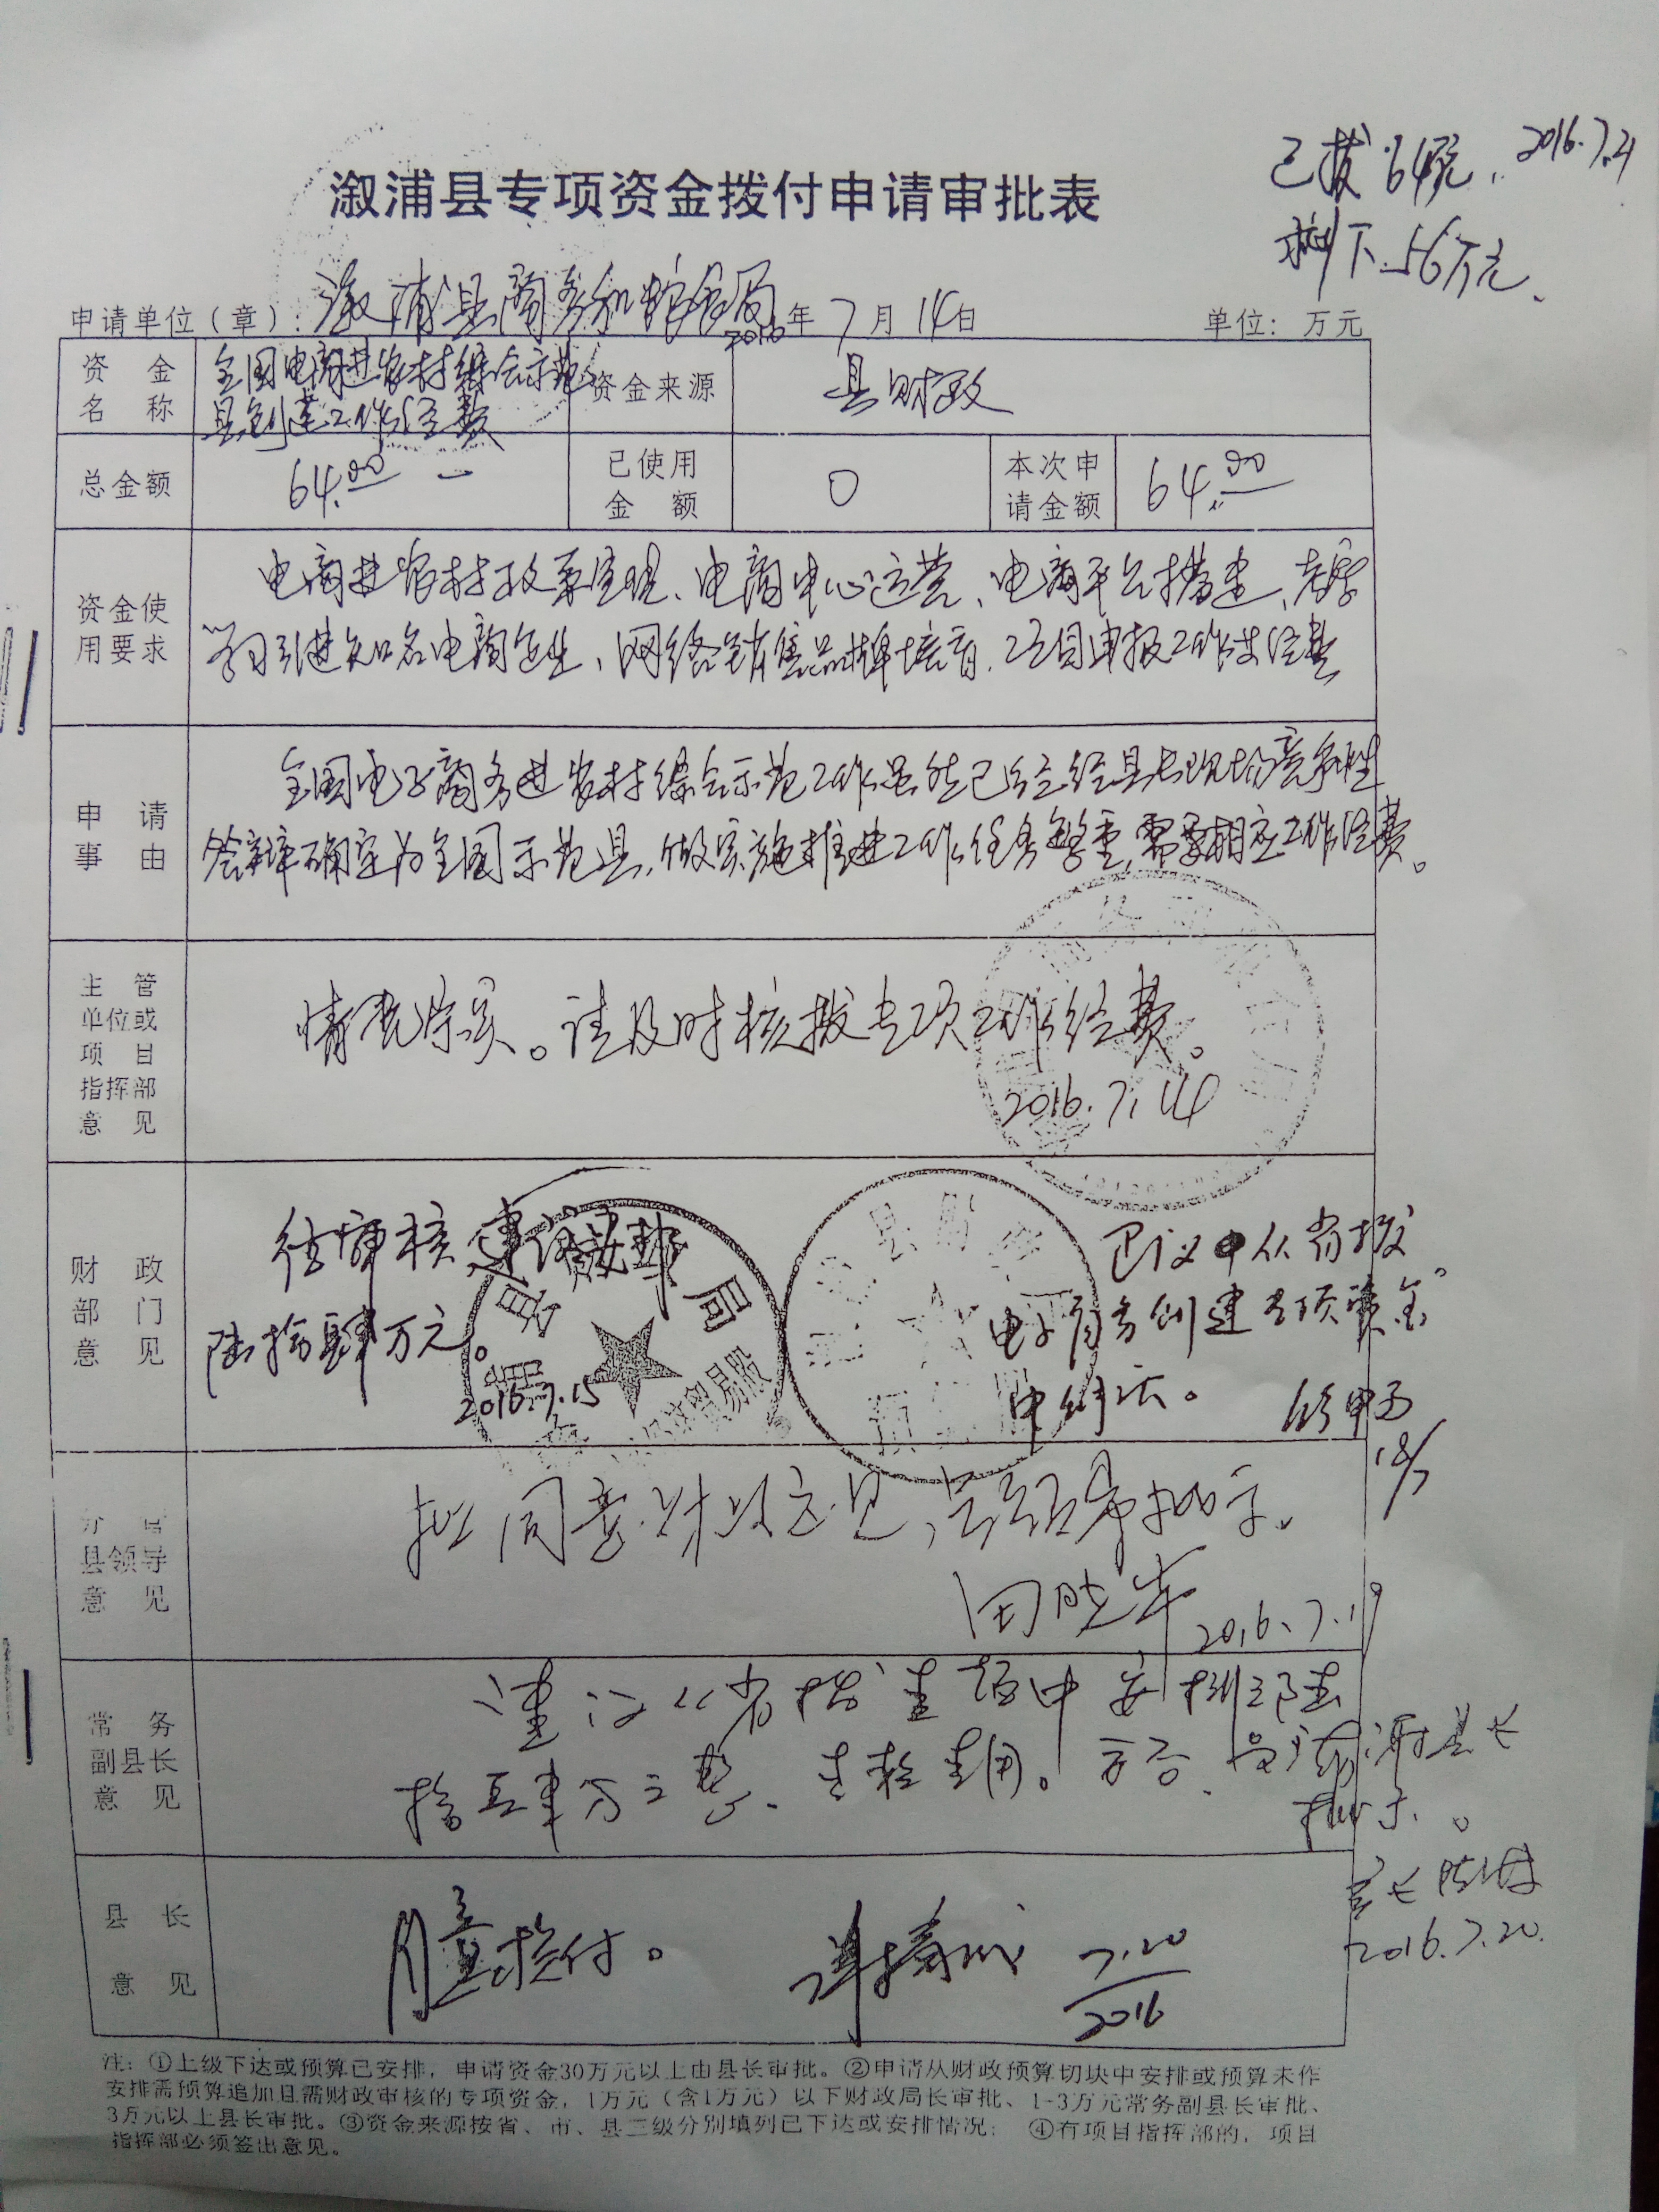 已拨64万元, 2016.7.21
剩下56万元.
溆浦县专项资金拨付申请审批表
申请单位(章): 溆浦县商务和粮食局 2016年7月14日 单位: 万元
资金名称 全国电商进农村综合示范县创建工作经费 资金来源 县财政
总金额 64.00 已使用金额 0 本次申请金额 64.00
资金使用要求
电商进农村政策宣观、电商中心运营、电商平台搭建、考察
学习引进知名电商企业、网络销售品牌培育、项目申报工作等经费
申请事由
全国电子商务进农村综合示范工作虽然已经经县长现场竞争性
答辩确定为全国示范县,但实施推进工作任务繁重,需要相应工作经费。
主管单位或项目指挥部意见
情况属实。请及时核拨专项工作经费。
2016.7.14
财政部门意见
经审核建议安排
陆拾肆万元。
2016.7.15
建议从省拨
电子商务创建专项资金
中列支。
18/7
分管县领导意见
拟同意财政意见,呈领导批示。
2016.7.19
常务副县长意见
建议从省拨资金中安排陆
拾肆万元整,专款专用。妥否,呈请谭县长
批示。
2016.7.20.
县长意见
同意拨付。 7.20
2016
注: ①上级下达或预算已安排, 申请资金30万元以上由县长审批。②申请从财政预算切块中安排或预算未作
安排需预算追加且需财政审核的专项资金, 1万元(含1万元)以下财政局长审批、1-3万元常务副县长审批、
3万元以上县长审批。③资金来源按省、市、县三级分别填列已下达或安排情况; ④有项目指挥部的, 项目
指挥部必须签出意见。